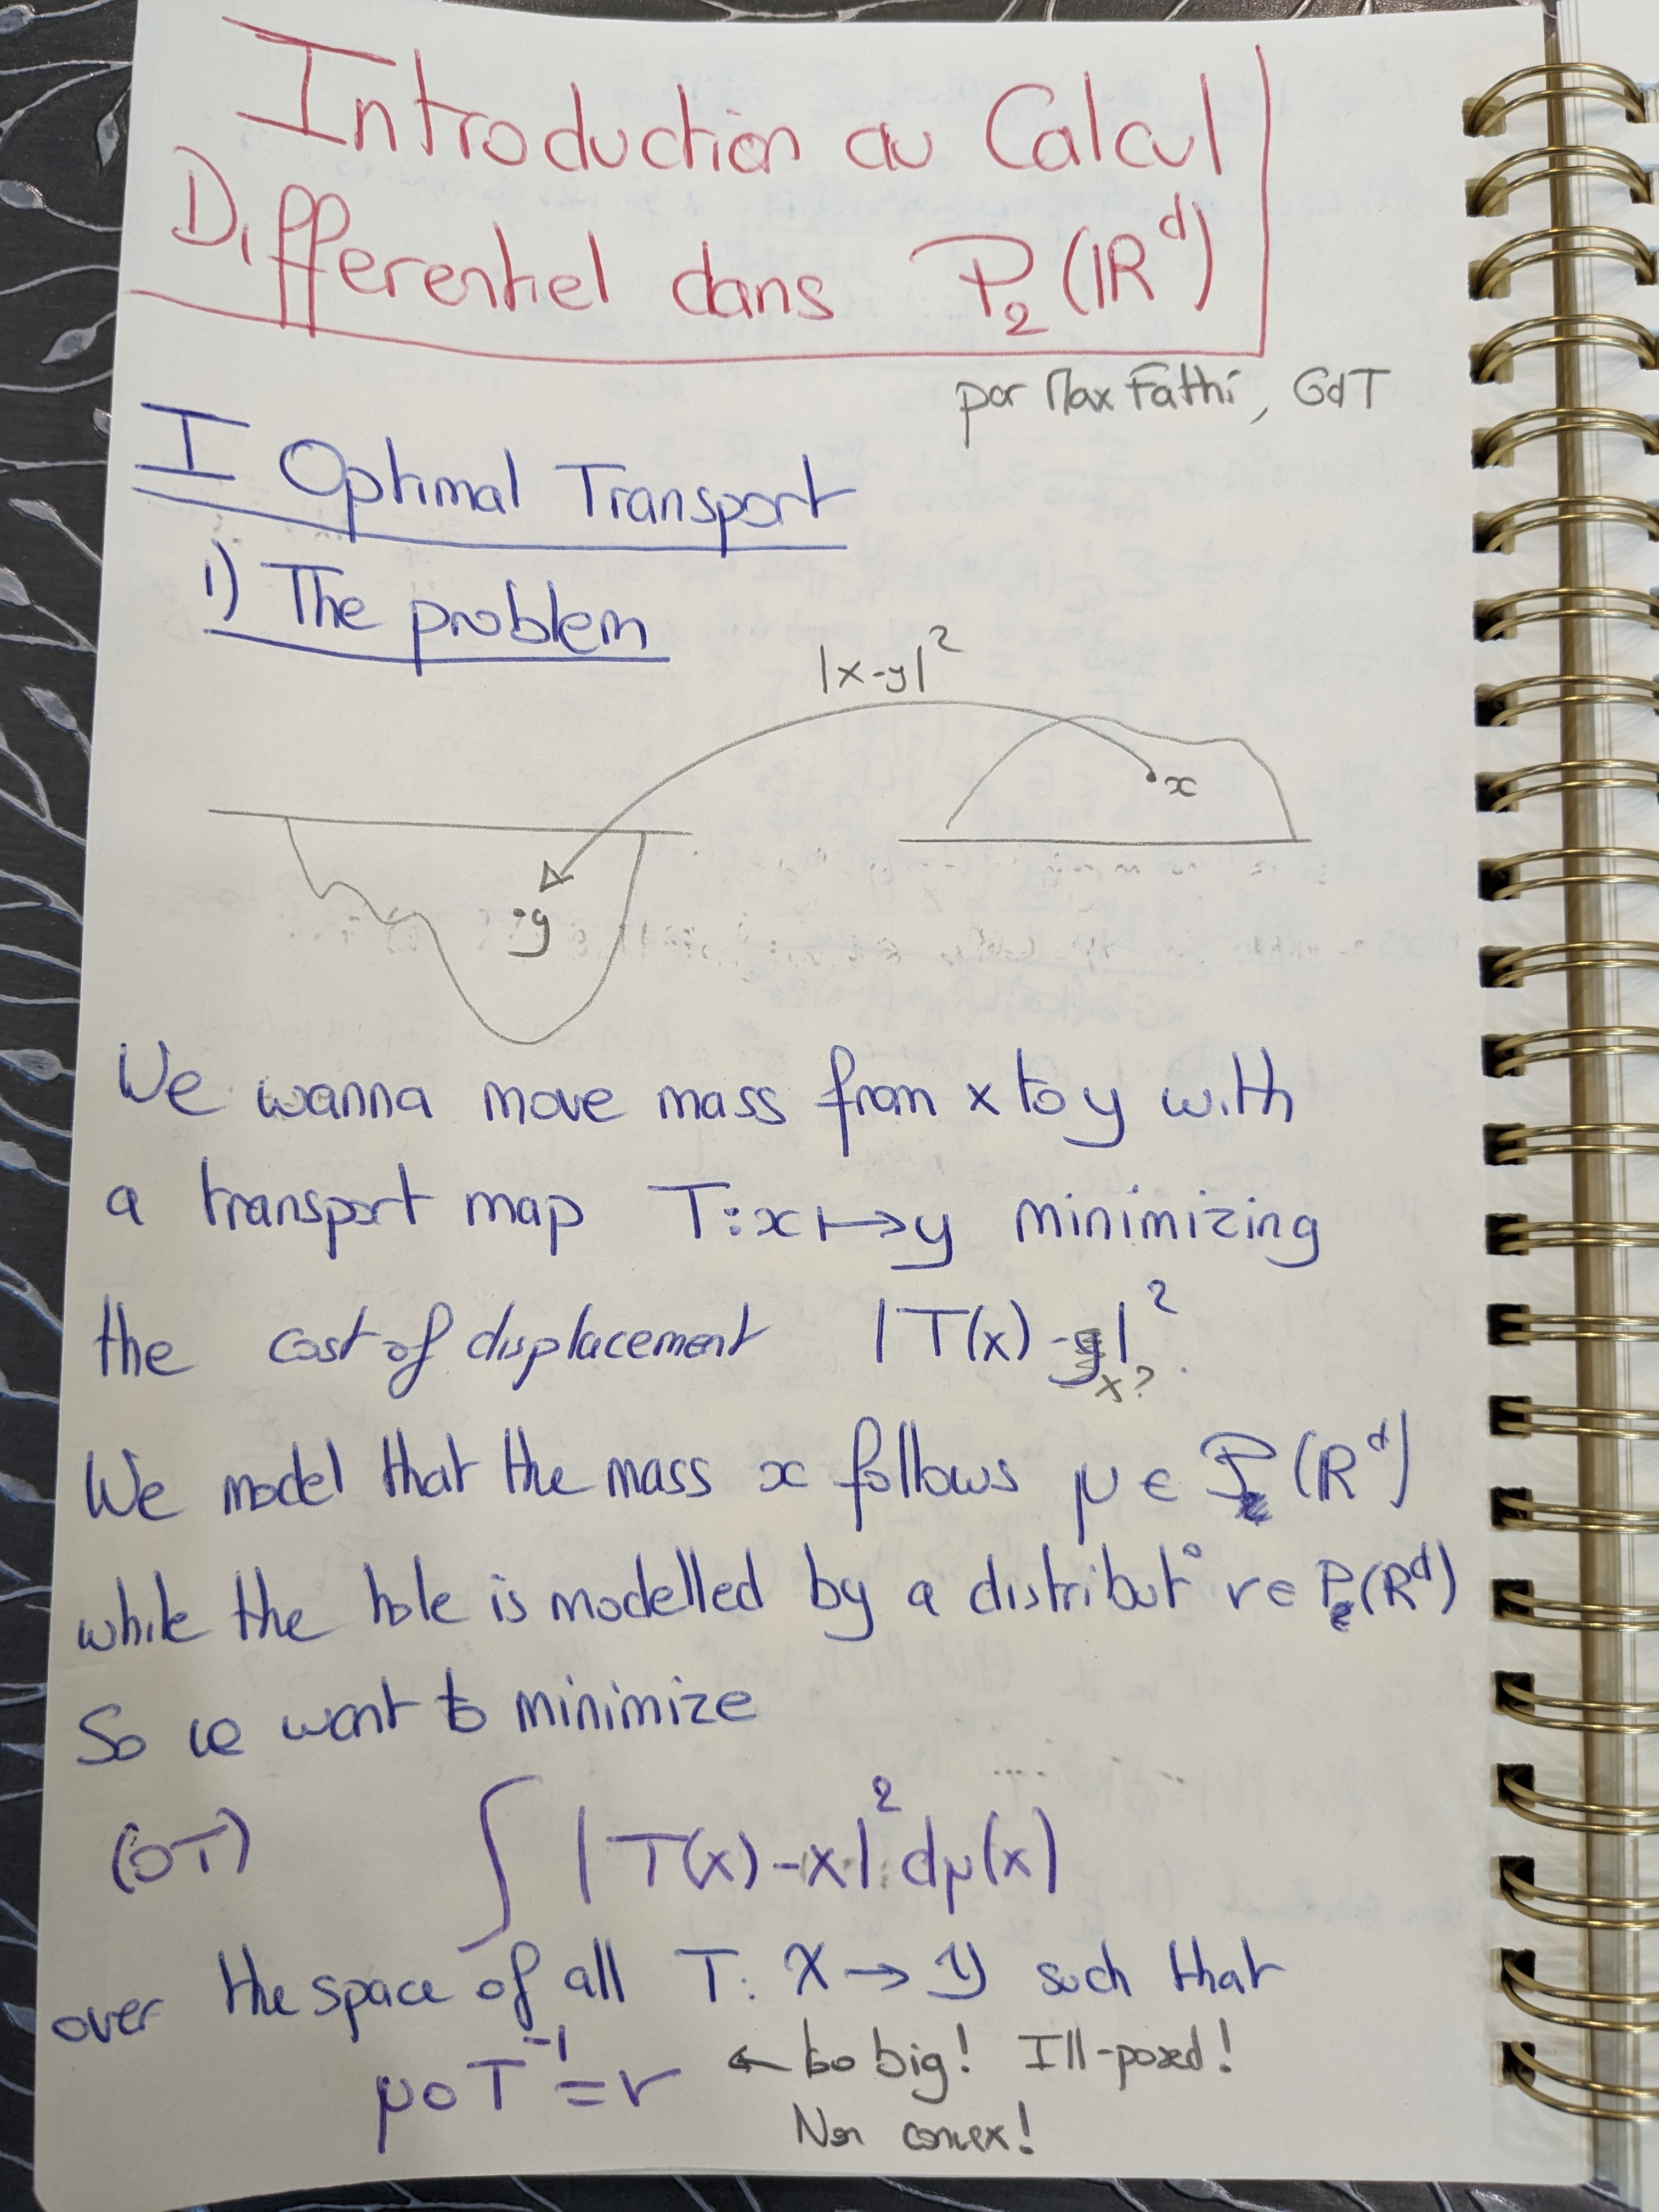 Introduction au Calcul
Differentiel dans P₂(ℝᵈ)
par Max Fathi, GdT
I Optimal Transport
1) The problem
|x-y|²
x
y
We wanna move mass from x to y with
a transport map T: x ↦ y minimizing
the cost of displacement |T(x) - y|².
x?
We model that the mass x follows μ ∈ P(ℝᵈ)
while the hole is modelled by a distribut° ν ∈ P(ℝᵈ)
So we want to minimize
(OT) ∫ |T(x) - x|² dμ(x)
over the space of all T: X → Y such that
μ ∘ T⁻¹ = ν ← too big! Ill-posed!
Non convex!